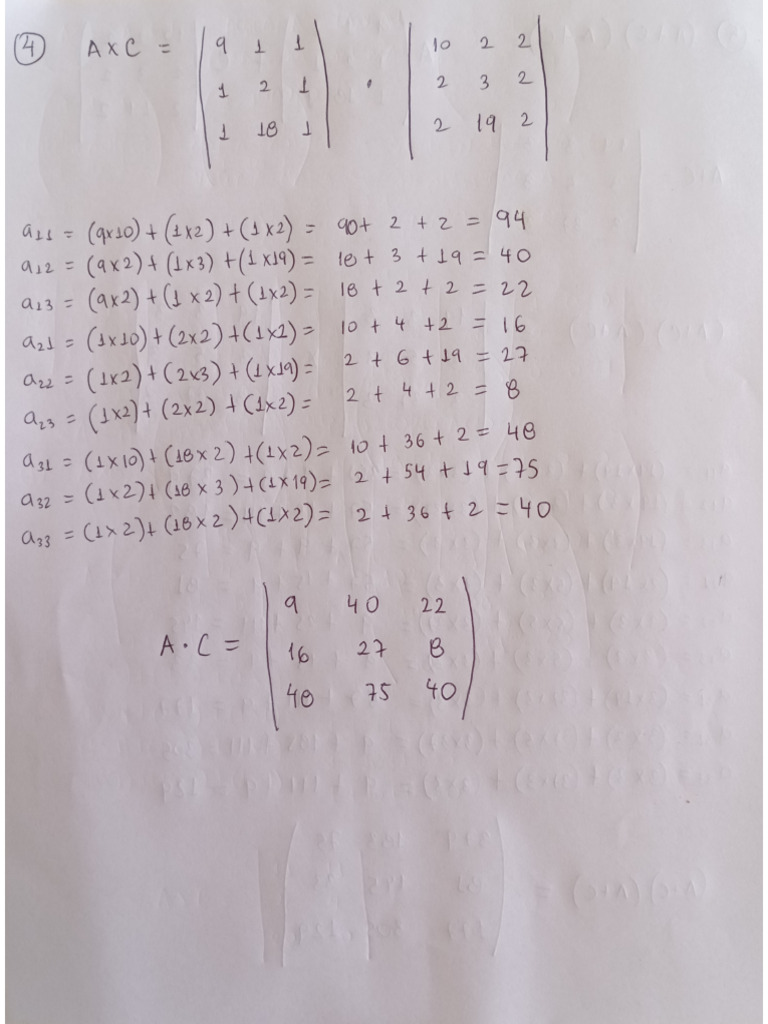 4 A×C = | 9 1 1 | · | 10 2 2 |
| 1 2 1 | | 2 3 2 |
| 1 18 1 | | 2 19 2 |
a11 = (9×10) + (1×2) + (1×2) = 90 + 2 + 2 = 94
a12 = (9×2) + (1×3) + (1×19) = 18 + 3 + 19 = 40
a13 = (9×2) + (1×2) + (1×2) = 18 + 2 + 2 = 22
a21 = (1×10) + (2×2) + (1×2) = 10 + 4 + 2 = 16
a22 = (1×2) + (2×3) + (1×19) = 2 + 6 + 19 = 27
a23 = (1×2) + (2×2) + (1×2) = 2 + 4 + 2 = 8
a31 = (1×10) + (18×2) + (1×2) = 10 + 36 + 2 = 48
a32 = (1×2) + (18×3) + (1×19) = 2 + 54 + 19 = 75
a33 = (1×2) + (18×2) + (1×2) = 2 + 36 + 2 = 40
| 9 40 22 |
A·C = | 16 27 8 |
| 48 75 40 |